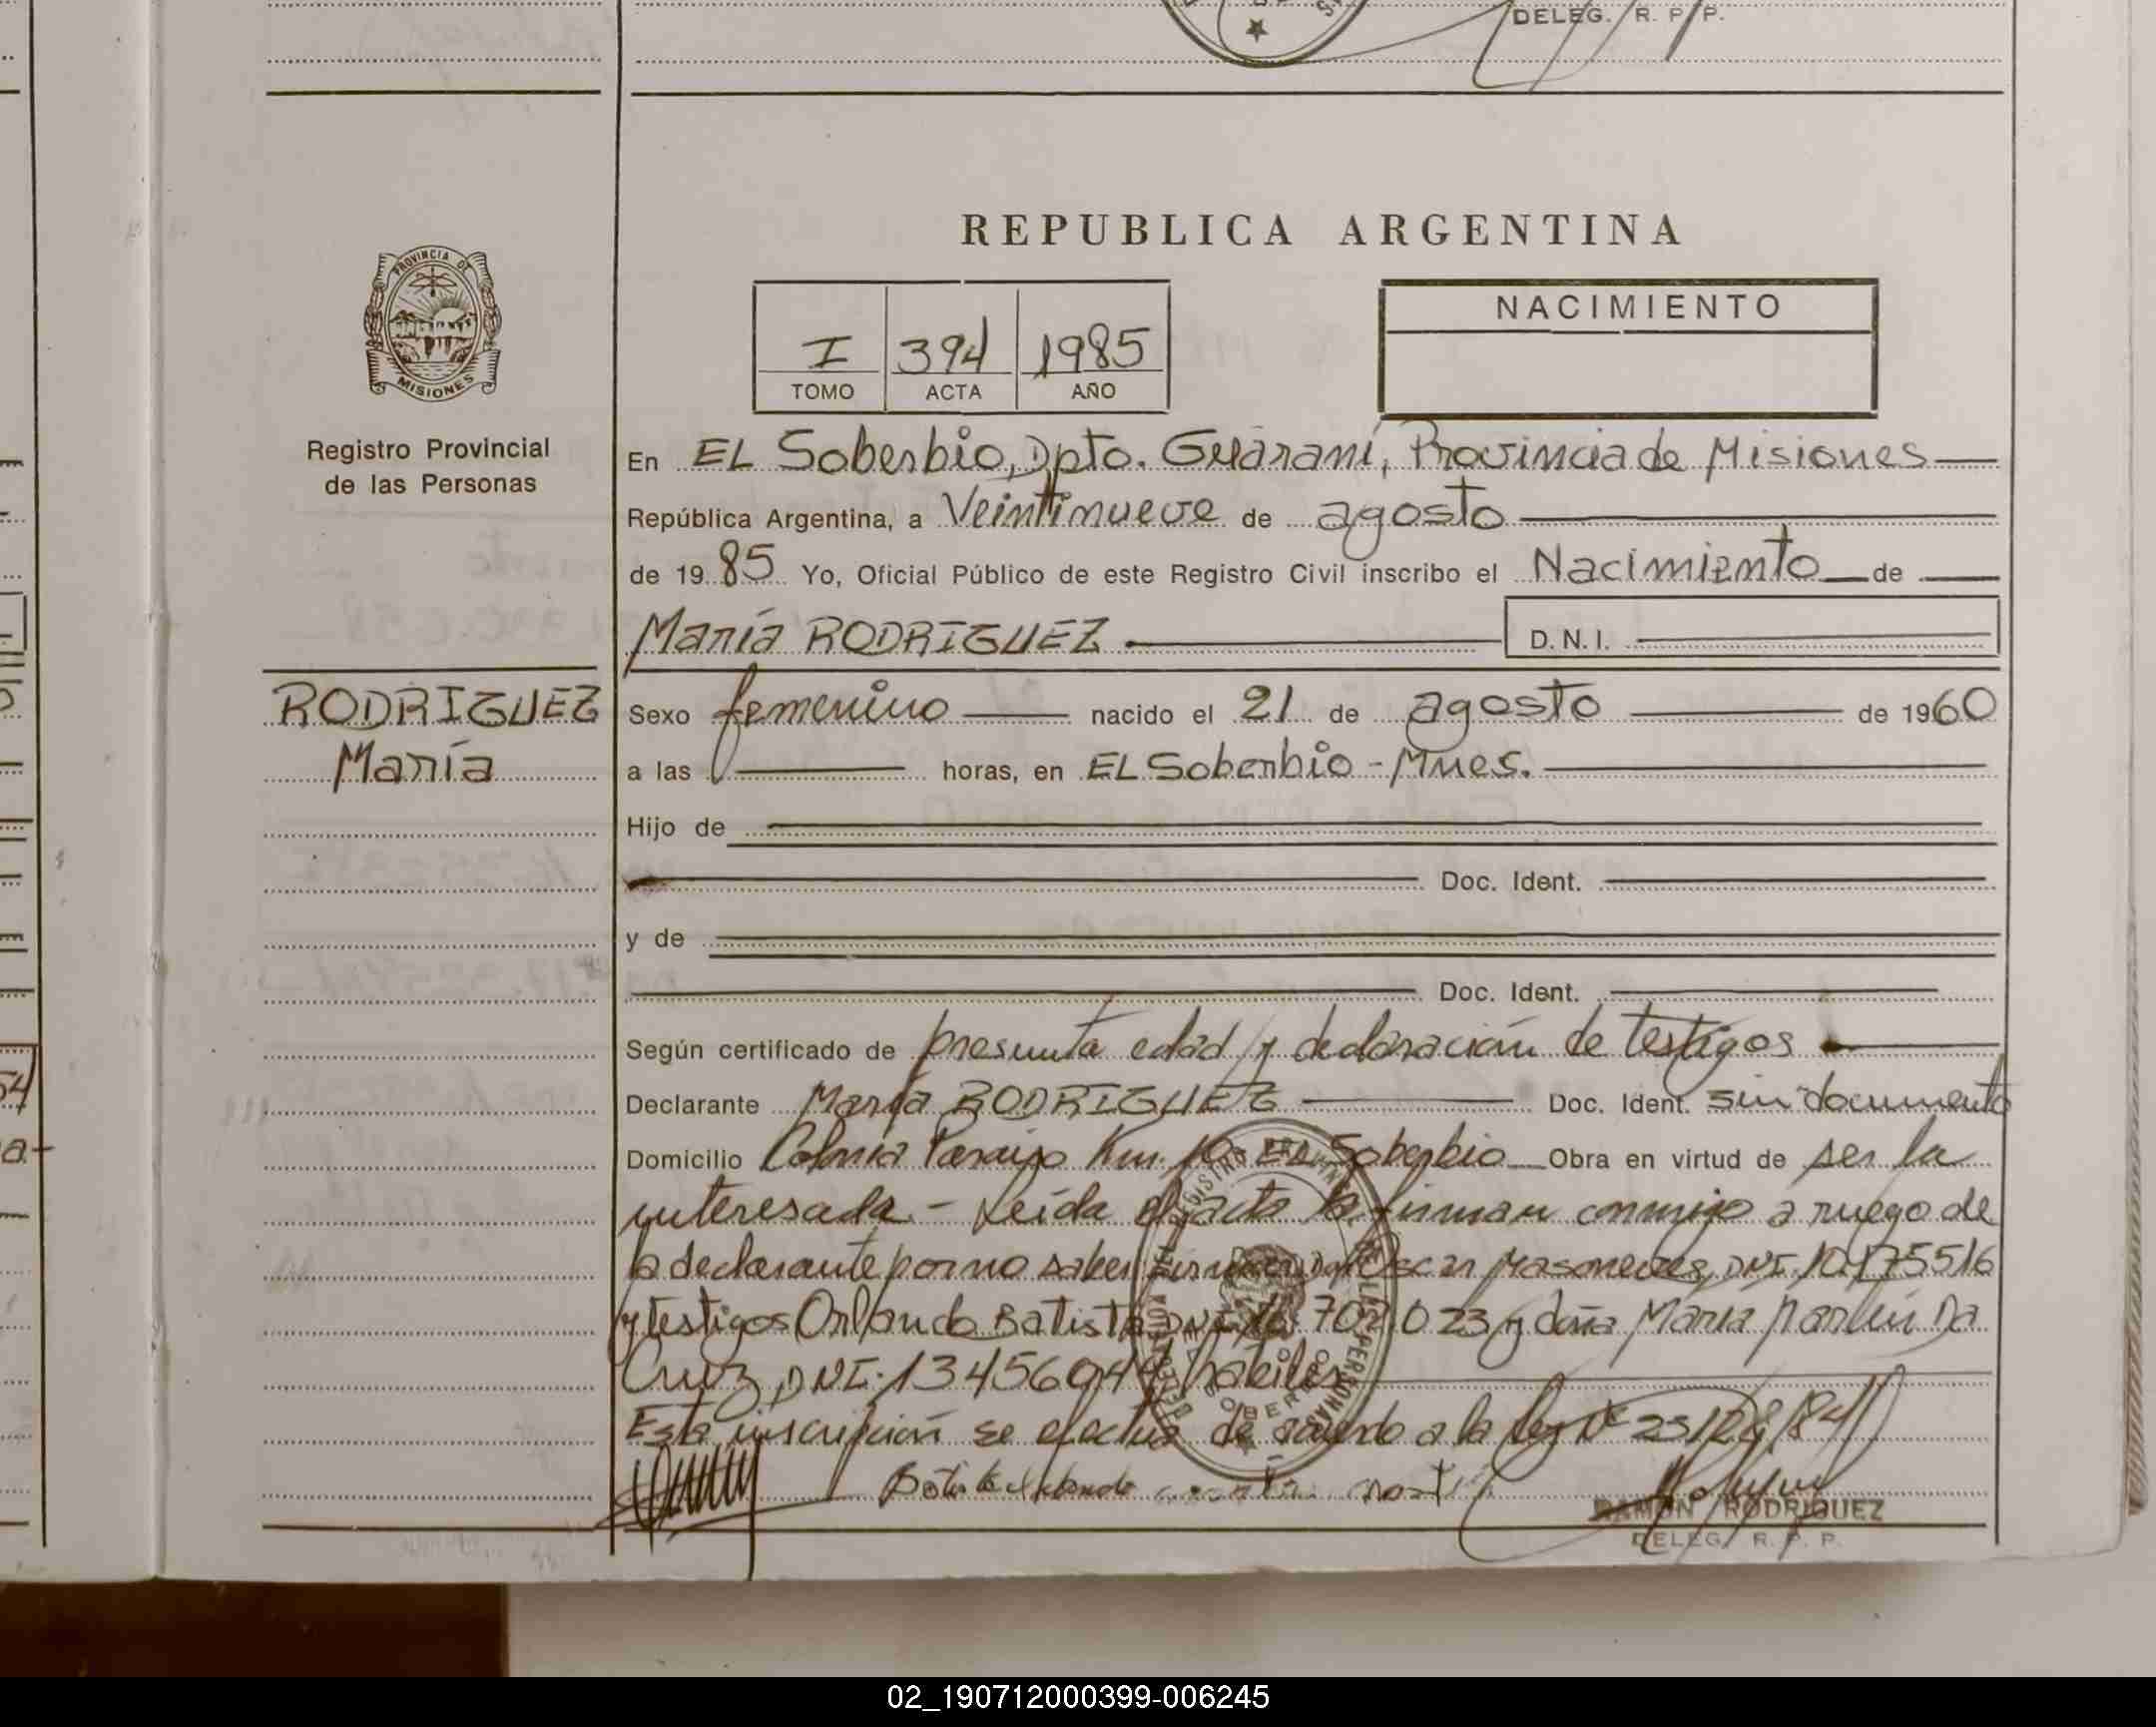 DELEG. R. P. P.
PROVINCIA DE
MISIONES
Registro Provincial
de las Personas
REPUBLICA ARGENTINA
I 394 1985
TOMO ACTA AÑO
NACIMIENTO
En EL Soberbio, Dpto. Guaraní, Provincia de Misiones
República Argentina, a Veintinueve de agosto
de 19 85 Yo, Oficial Público de este Registro Civil inscribo el Nacimiento de
María RODRIGUEZ D.N.I.
RODRIGUEZ
María
Sexo femenino nacido el 21 de agosto de 19 60
a las horas, en EL Soberbio - Mnes.
Hijo de
Doc. Ident.
y de
Doc. Ident.
Según certificado de presunta edad y declaración de testigos
Declarante María RODRIGUEZ Doc. Ident. sin documento
Domicilio Colonia Paraiso Km. 10 EL Soberbio Obra en virtud de ser la
interesada - Leída el acta la firman conmigo a ruego de
la declarante por no saber firmar Oscar DNI. 10175516
y testigos Orlando Batista DNI 702.023 y doña María Da
Cruz DNI. 13456944 hábiles
Esta inscripción se efectua de acuerdo a la ley Nº 23128/84
RAMON RODRIGUEZ
DELEG. R. P. P.
02_190712000399-006245